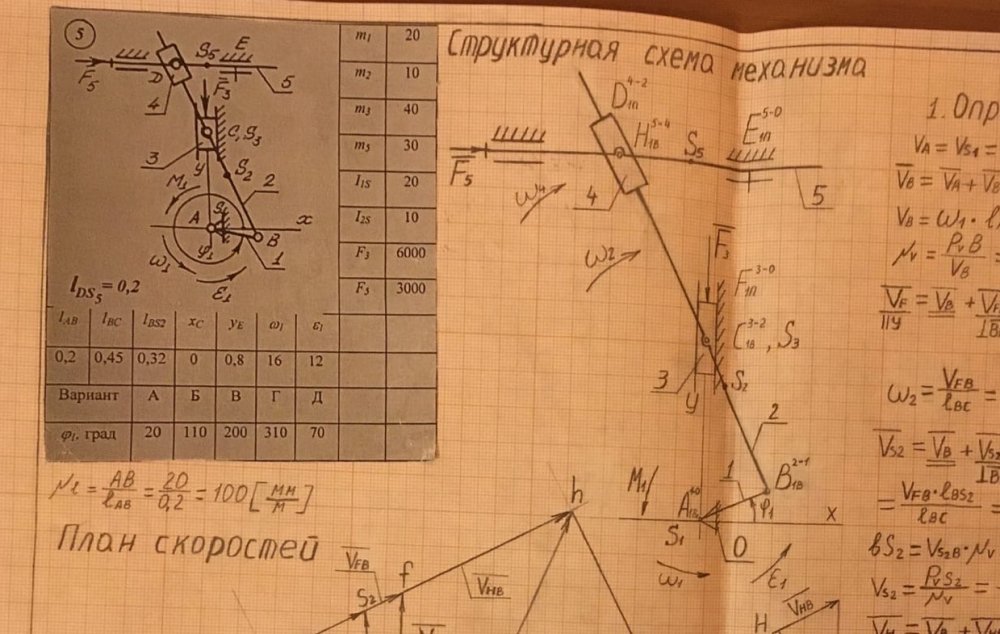 5
S₅ E
F₅ D F₃ 5
4
C, S₃
3
y S₂
M₁ 2
A S₁ x
φ₁ B
ω₁ 1
ε₁
l_DS₅ = 0,2
m₁ 20
m₂ 10
m₃ 40
m₅ 30
I₁S 20
I₂S 10
F₃ 6000
F₅ 3000
l_AB l_BC l_BS2 x_C y_E ω₁ ε₁
0,2 0,45 0,32 0 0,8 16 12
Вариант А Б В Г Д
φ₁, град 20 110 200 310 70
μ_l = AB/l_AB = 20/0,2 = 100 [мм/м]
План скоростей
V_FB f h
S₂ V_HB
Структурная схема механизма
D₁п⁴⁻²
H₁в⁵⁻⁴ S₅ E₁п⁵⁻⁰
F₅
4 5
ω₄
ω₂ F₃ F₁п³⁻⁰
C₁в³⁻², S₃
3
y S₂
2
M₁ 1 B₁в²⁻¹
A₁в φ₁ x
S₁ 0
ω₁ ε₁
V_HB
H
1. Опр
V_A = V_S1 =
V_B = V_A +
V_B = ω₁ · l
μ_v = P_vB/V_B =
V_F = V_B + V
//y ⊥B
ω₂ = V_FB/l_BC =
V_S2 = V_B + V_S
⊥B
= V_FB·l_BS2/l_BC =
bS₂ = V_S₂B · μ_v
V_S₂ = P_vS₂/μ_v =